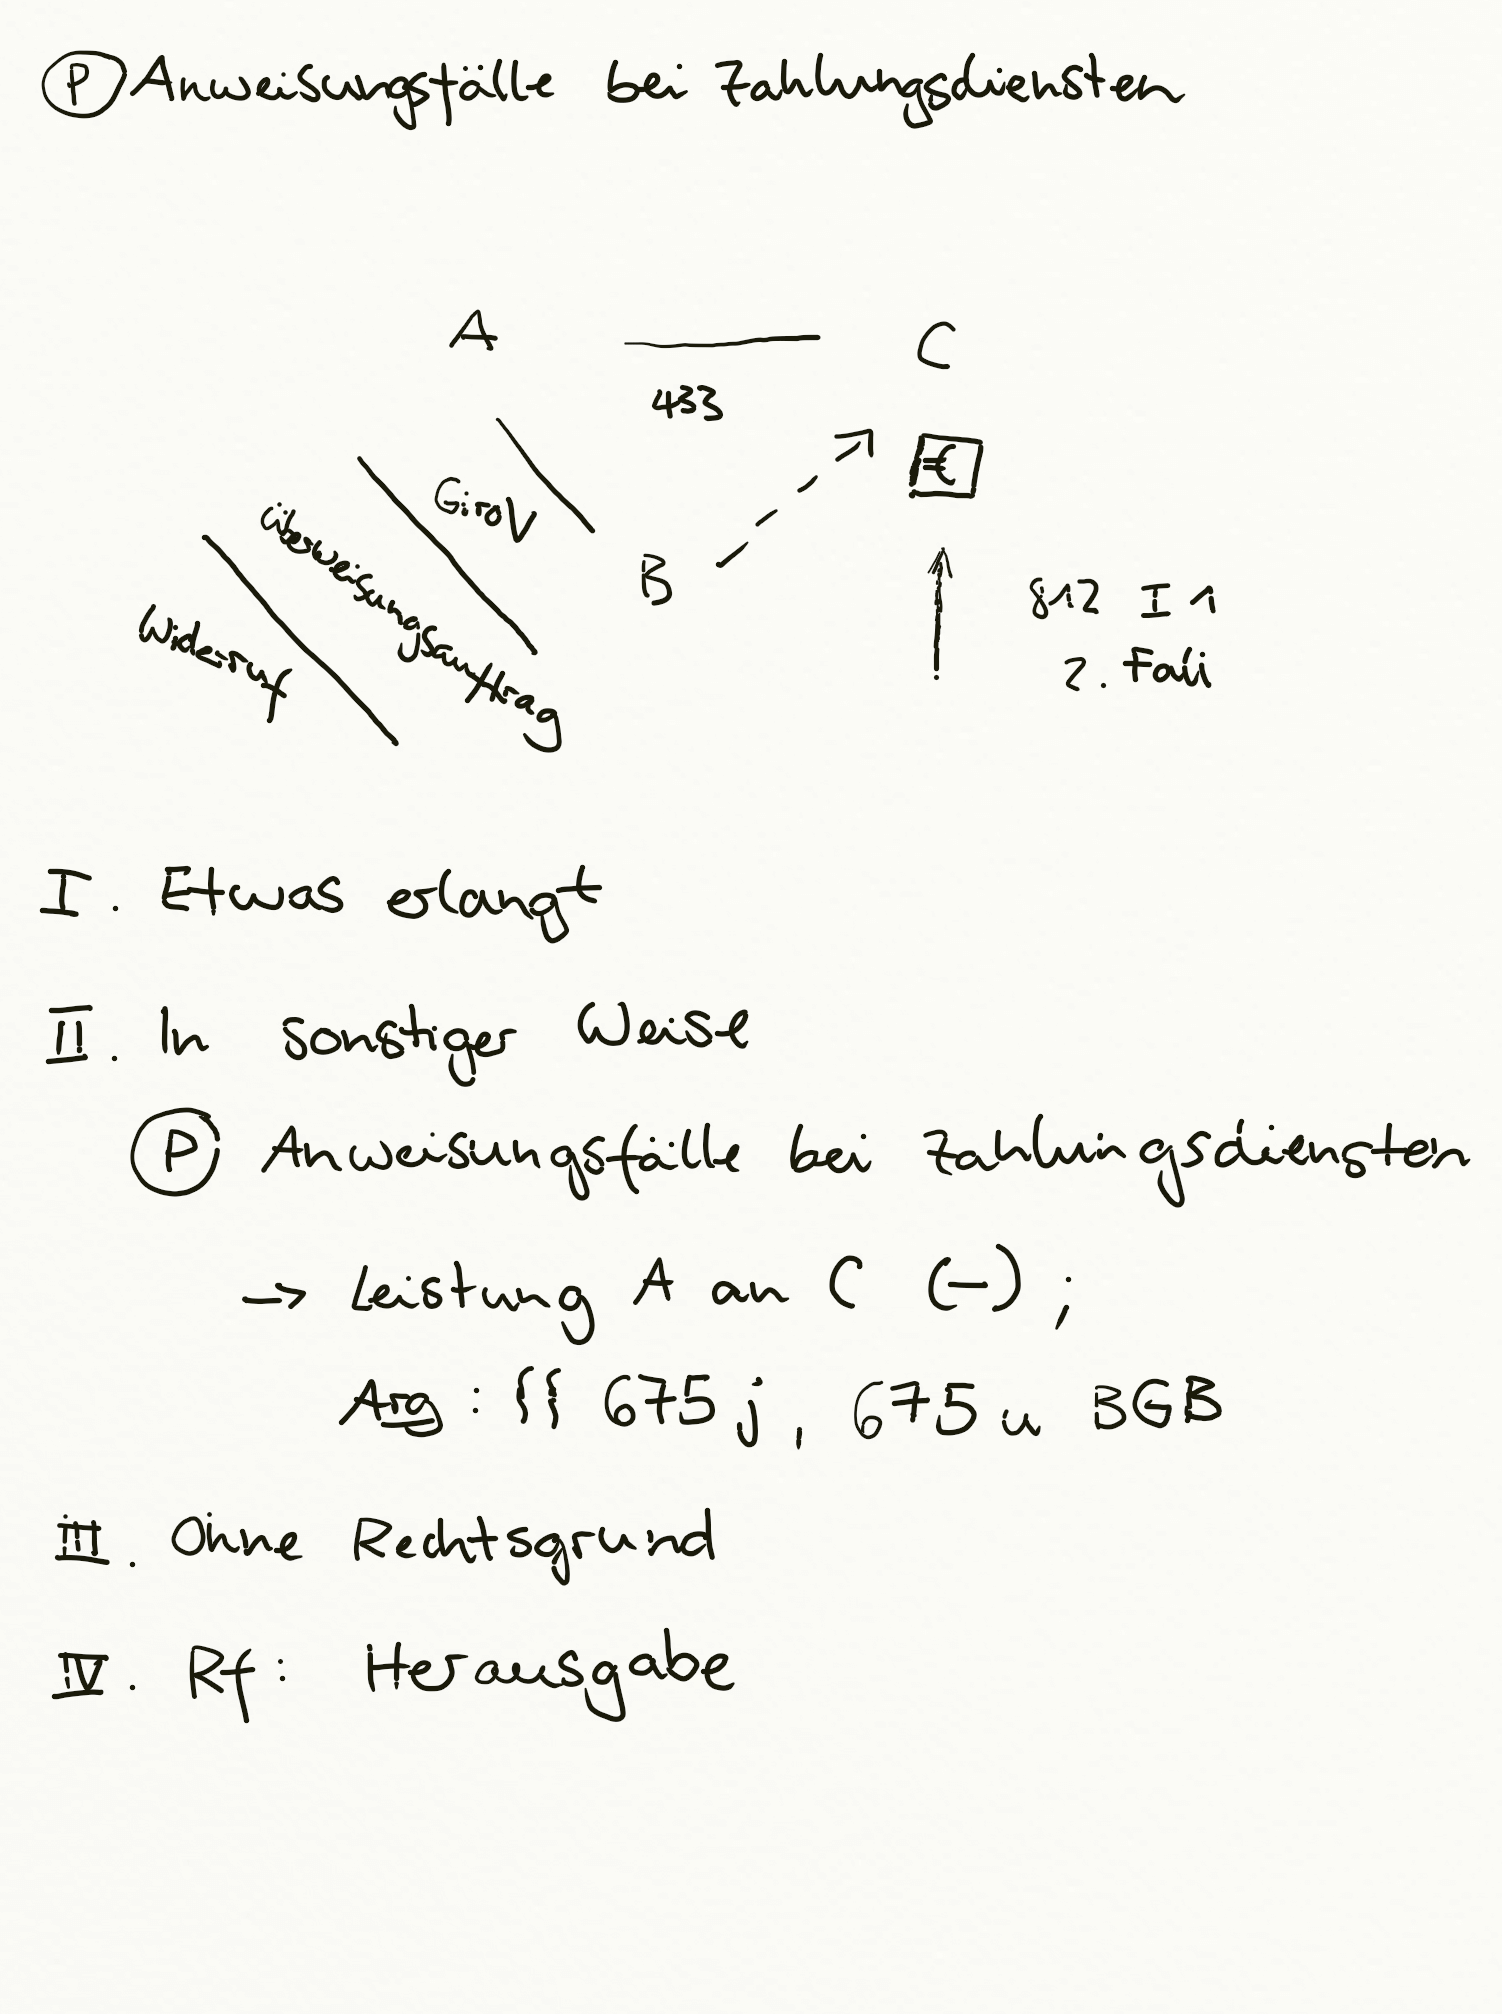 Ⓟ Anweisungsfälle bei Zahlungsdiensten
A C
433
€
GiroV
Überweisungsauftrag
B
Widerruf
812 I 1
2. Fall
I. Etwas erlangt
II. In sonstiger Weise
Ⓟ Anweisungsfälle bei Zahlungsdiensten
→ Leistung A an C (-) ;
Arg : §§ 675 j , 675 u BGB
III. Ohne Rechtsgrund
IV. Rf : Herausgabe